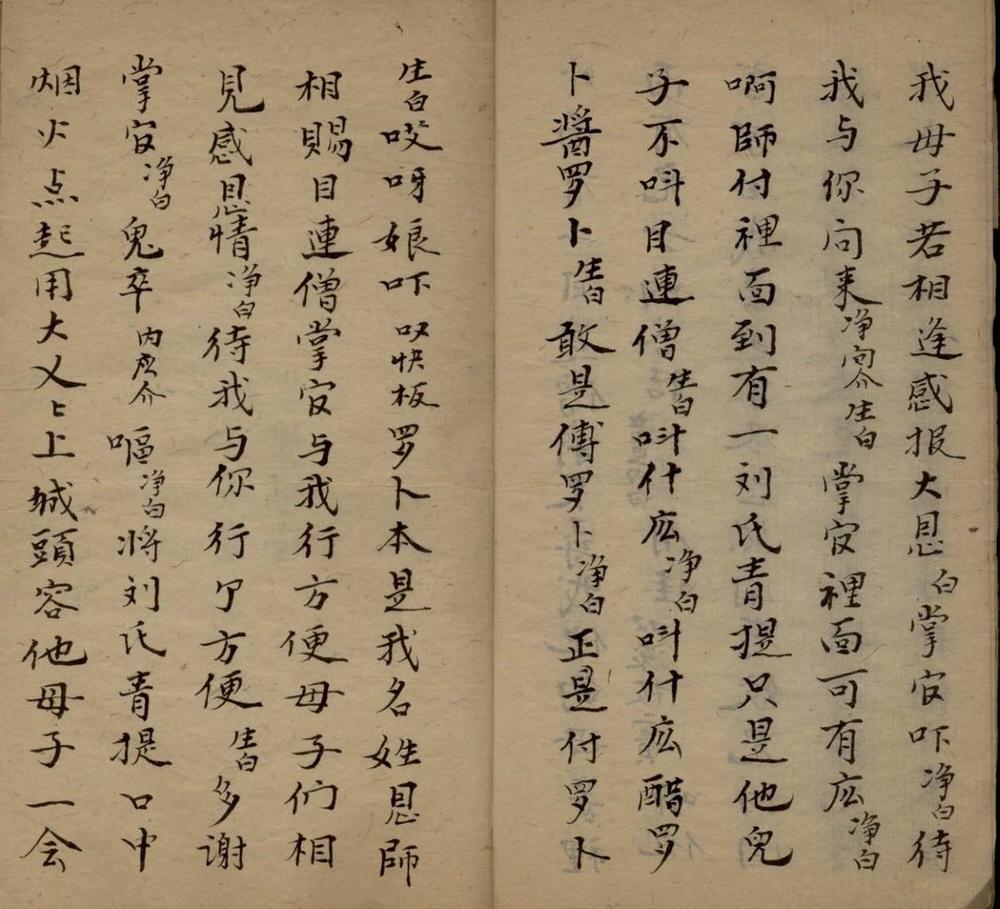 我母子若相逢感报大恩白掌官吓净白待
我与你问来净问介生白掌官裡面可有広净白
啊師付裡面到有一刘氏青提只是他兒
子不叫目連僧生白叫什広净白叫什広醋罗
卜醬罗卜生白敢是傅罗卜净白正是付罗卜
生白哎呀娘吓叹快板罗卜本是我名姓恩師
相賜目連僧掌官与我行方便母子们相
見感恩情净白待我与你行个方便生白多谢
掌官净白鬼卒内应介嘔净白将刘氏青提口中
烟火点起用大叉上城頭容他母子一会